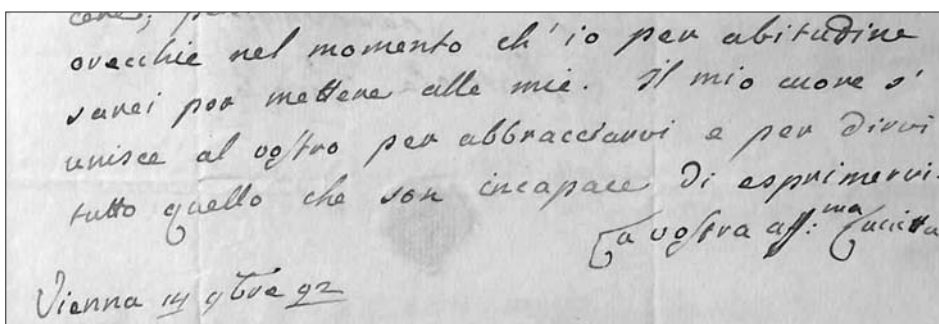 orecchie nel momento ch'io per abitudine
sarei per mettere alle mie. Il mio cuore s'
unisce al vostro per abbracciarvi e per dirvi
tutto quello che son incapace di esprimervi.
La vostra aff:ma Lucietta
Vienna 14 9bre 92